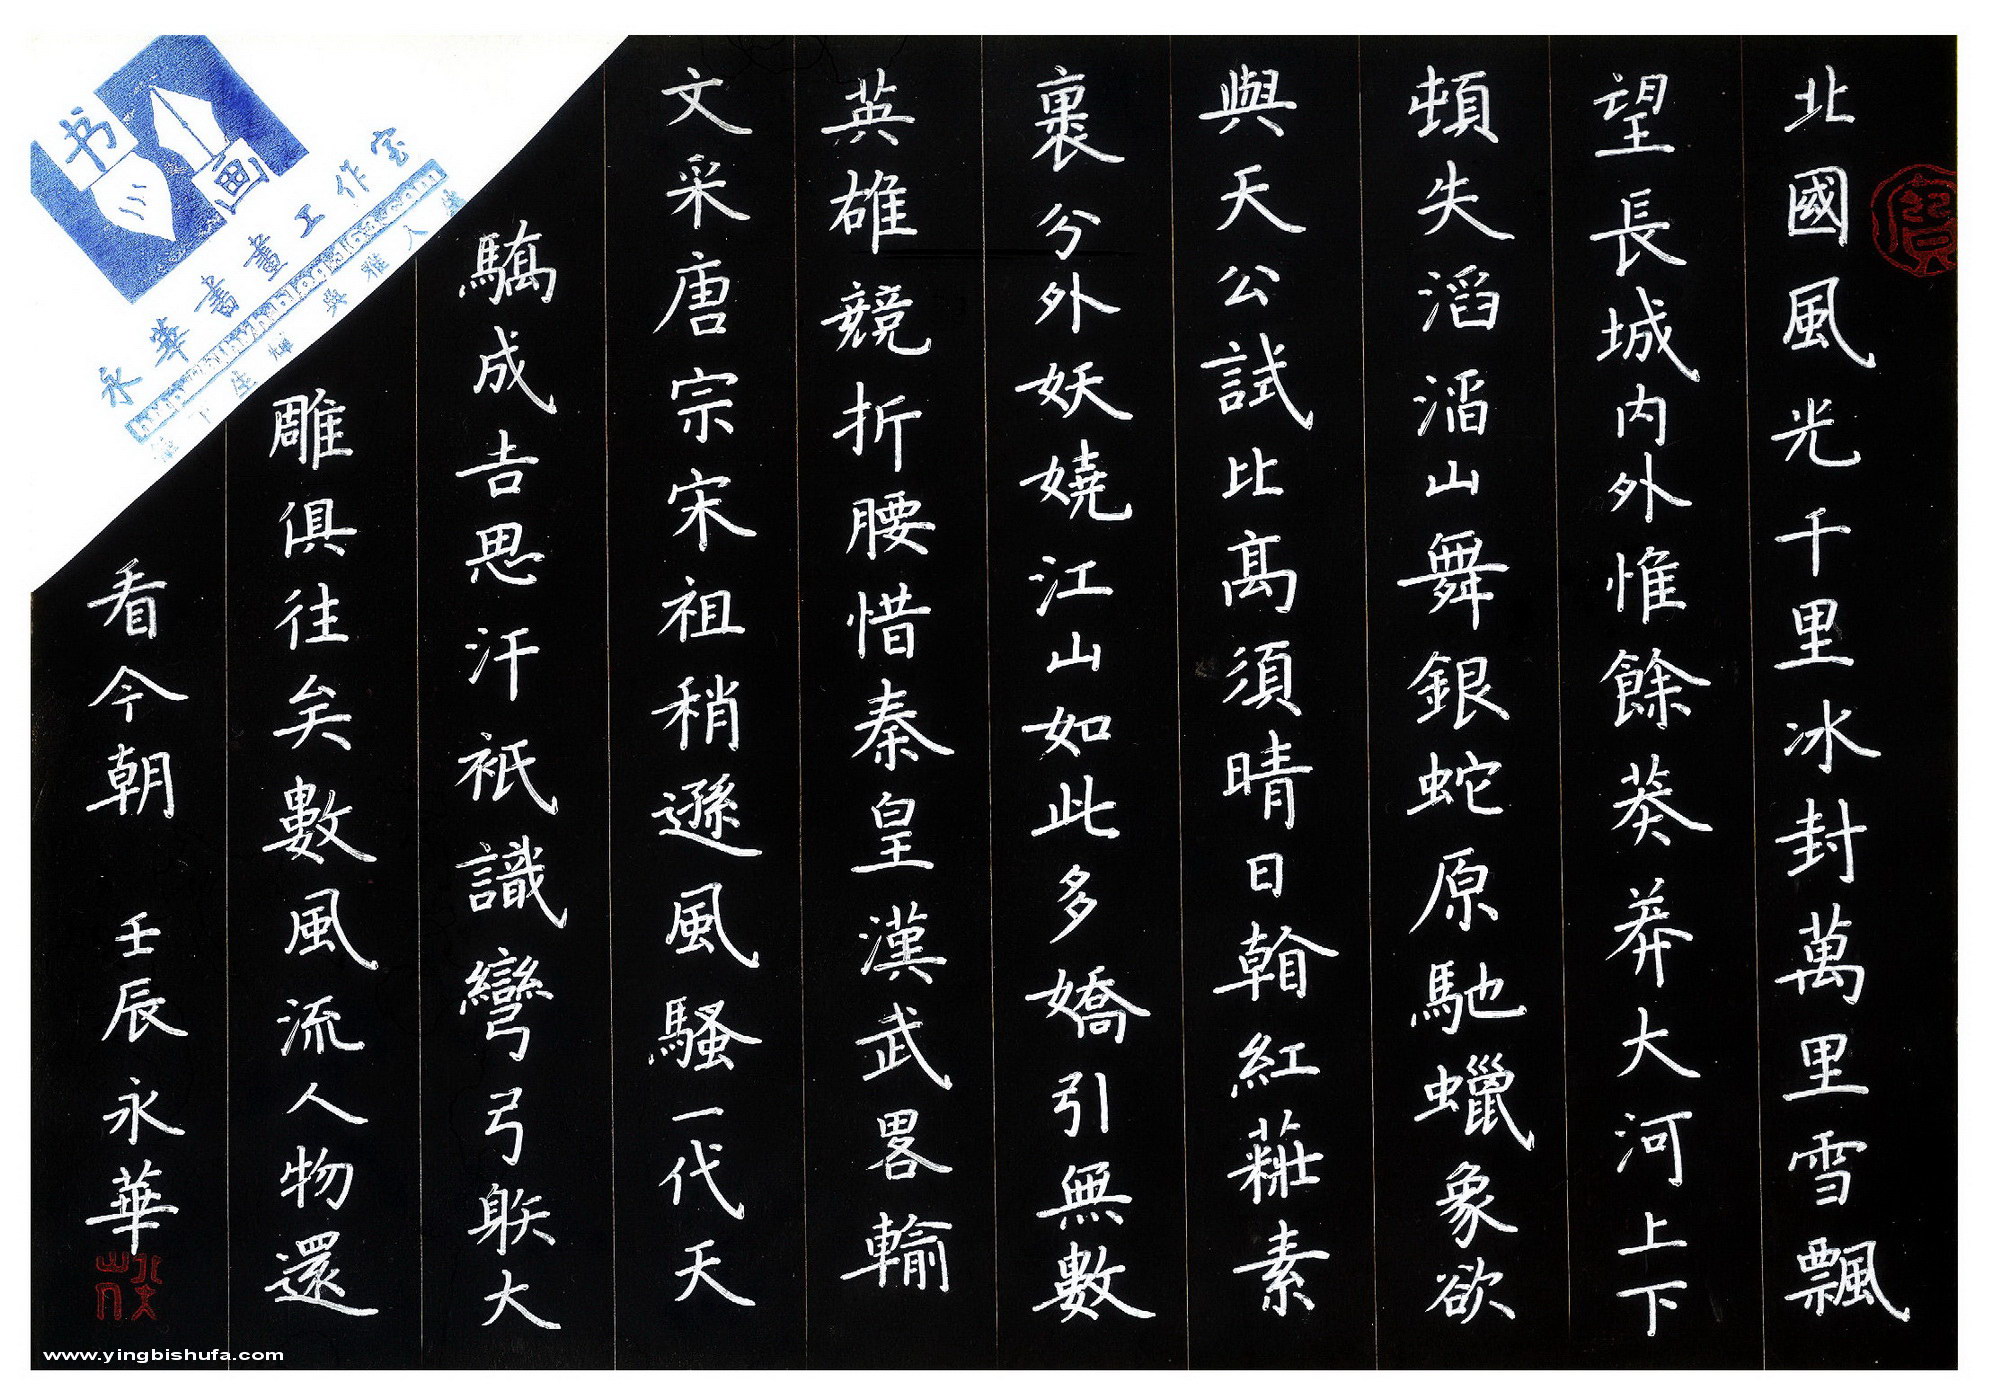 北國風光千里冰封萬里雪飄
望長城內外惟餘莽莽大河上下
頓失滔滔山舞銀蛇原馳蠟象欲
與天公試比高須晴日看紅裝素
裹分外妖嬈江山如此多嬌引無數
英雄競折腰惜秦皇漢武畧輸
文采唐宗宋祖稍遜風騷一代天
驕成吉思汗祇識彎弓射大
雕俱往矣數風流人物還
看今朝 壬辰永華
书画
永華書畫工作室
www.yingbishufa.com